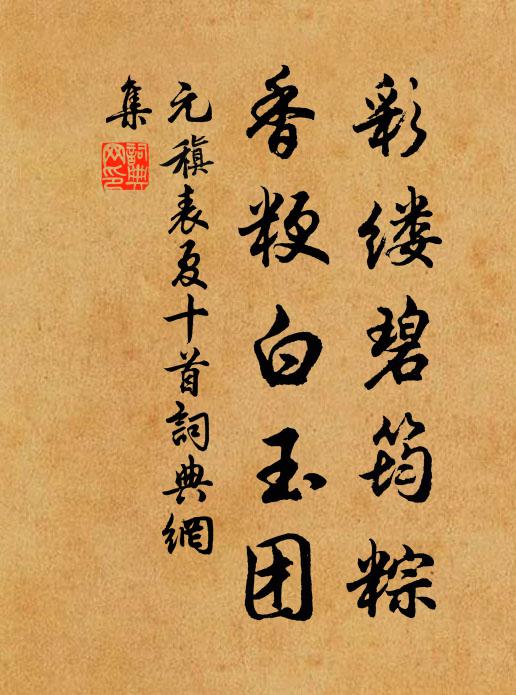 彩缕碧筠粽
香粳白玉团
元稹表夏十首詞典網
集
詞典網印